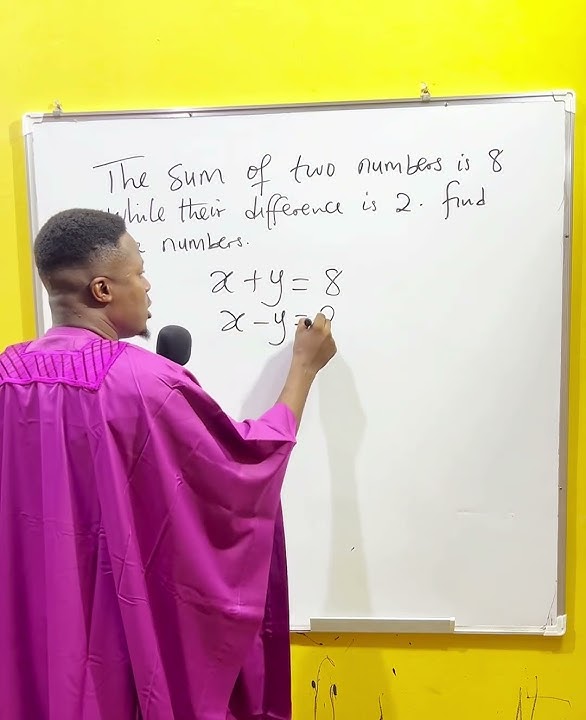 The sum of two numbers is 8
while their difference is 2. find
numbers.
x + y = 8
x - y =